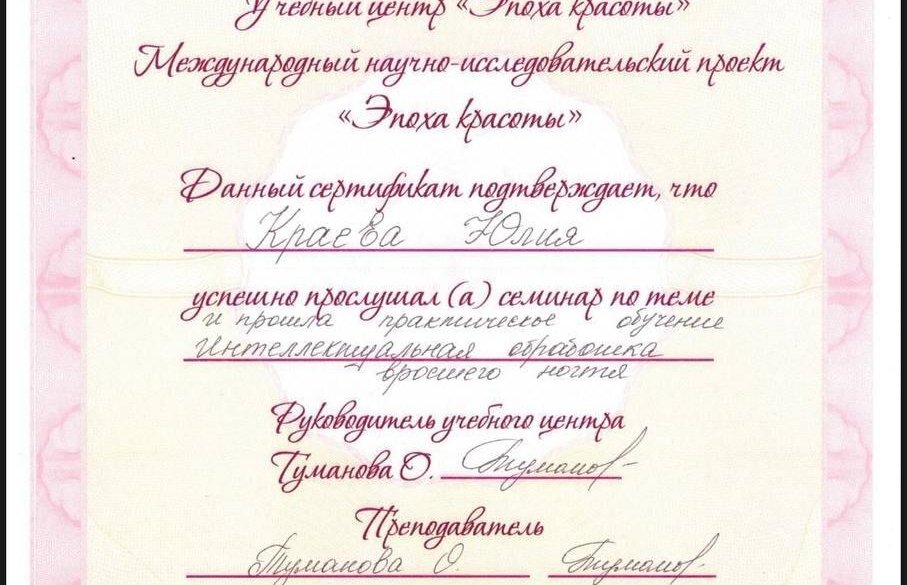 Учебный центр «Эпоха красоты»
Международный научно-исследовательский проект
«Эпоха красоты»
Данный сертификат подтверждает, что
Краева Юлия
успешно прослушал (а) семинар по теме
и прошла практическое обучение
Интеллектуальная обработка
вросшего ногтя
Руководитель учебного центра
Туманова О. Туманов
Преподаватель
Туманова О. Туманов